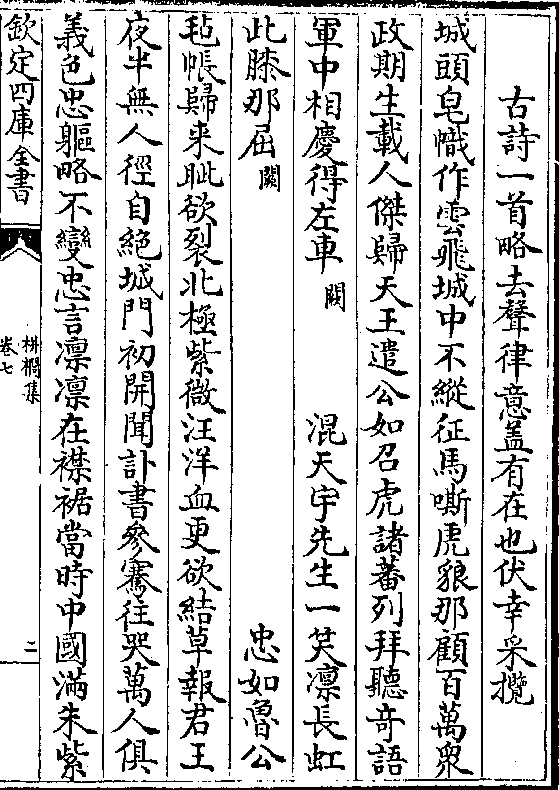 古詩一首略去聲律意盖有在也伏幸采攬
城頭皂幟作雲飛城中不縱征馬嘶虎狼那顧百萬衆
政期生載人傑歸天王遣公如召虎諸蕃列拜聽奇語
軍中相慶得左車闕混天宇先生一笑凛長虹
此膝那屈闕忠如魯公
毡帳歸来眦欲裂北極紫微汪洋血更欲結草報君王
夜半無人徑自絶城門初開聞訃書參騫往哭萬人俱
義色忠軀略不變忠言凛凛在襟裾當時中國滿朱紫
欽定四庫全書
栟櫚集
卷七
二